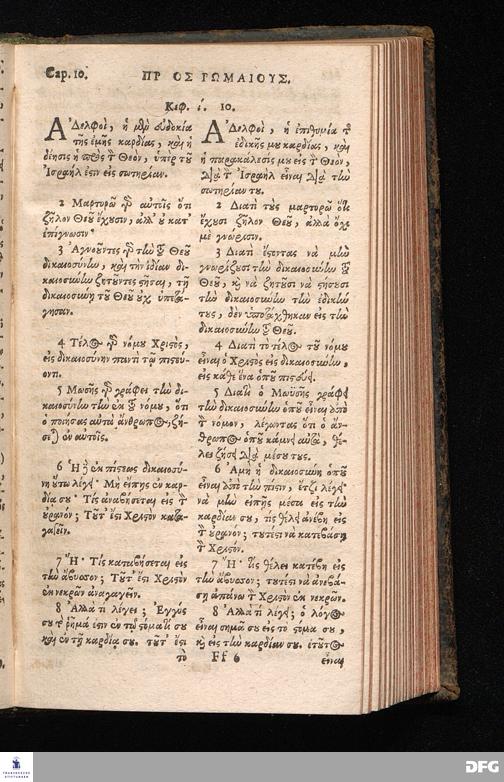 Cap. 10. ΠΡΟΣ ΡΩΜΑΙΟΥΣ.
Κεφ. ί. 10.
ἈΔελφοὶ, ἡ μὲν εὐδοκία
τῆς ἐμῆς καρδίας, καὶ ἡ
δέησις ἡ πρὸς τὸν Θεὸν, ὑπὲρ τοῦ
Ἰσραήλ ἐστιν εἰς σωτηρίαν.
2 Μαρτυρῶ γὰρ αὐτοῖς ὅτι
ζῆλον Θεοῦ ἔχουσιν, ἀλλ' οὐ κατ'
ἐπίγνωσιν·
3 Ἀγνοοῦντες γὰρ τὴν τοῦ Θεοῦ
δικαιοσύνην, καὶ τὴν ἰδίαν δι-
καιοσύνην ζητοῦντες στῆσαι, τῇ
δικαιοσύνῃ τοῦ Θεοῦ οὐχ ὑπετά-
γησαν.
4 Τέλος γὰρ νόμου Χριστὸς,
εἰς δικαιοσύνην παντὶ τῷ πιστεύ-
οντι.
5 Μωσῆς γὰρ γράφει τὴν δι-
καιοσύνην τὴν ἐκ τοῦ νόμου, ὅτι
ὁ ποιήσας αὐτὰ ἄνθρωπος, ζή-
σεται ἐν αὐτοῖς.
6 Ἡ δὲ ἐκ πίστεως δικαιοσύ-
νη οὕτω λέγει· Μὴ εἴπῃς ἐν καρ-
δίᾳ σου· Τίς ἀναβήσεται εἰς τὸν
οὐρανόν; Τοῦτ' ἔστι Χριστὸν κατα-
γαγεῖν.
7 Ἤ· Τίς καταβήσεται εἰς
τὴν ἄβυσσον; Τοῦτ' ἔστι Χριστὸν
ἐκ νεκρῶν ἀναγαγεῖν.
8 Ἀλλὰ τί λέγει; Ἐγγύς
σου τὸ ῥῆμά ἐστιν ἐν τῷ στόματί σου
καὶ ἐν τῇ καρδίᾳ σου. τοῦτ' ἔστι
τὸ
ἈΔελφοὶ, ἡ ἐπιθυμία τῆς
ἐδικῆς μου καρδίας, καὶ
ἡ παρακάλεσίς μου εἰς τὸν Θεὸν,
διὰ τὸν Ἰσραὴλ εἶναι διὰ τὴν
σωτηρίαν του.
2 Διατὶ τοὺς μαρτυρῶ ὅτι
ἔχουσι ζῆλον Θεοῦ, ἀλλὰ ὄχι
μὲ γνώρισιν.
3 Διατὶ ἔστοντας νὰ μὴν
γνωρίζουσι τὴν δικαιοσύνην τοῦ
Θεοῦ, καὶ νὰ ζητοῦσι νὰ στήσουσι
τὴν δικαιοσύνην τὴν ἐδικήν
τους, δὲν ὑποτάχθηκαν εἰς τὴν
δικαιοσύνην τοῦ Θεοῦ.
4 Διατὶ τὸ τέλος τοῦ νόμου
εἶναι ὁ Χριστὸς εἰς δικαιοσύνην,
εἰς κάθε ἕνα ὁποῦ πιστεύει.
5 Διατὶ ὁ Μωϋσῆς γράφει
τὴν δικαιοσύνην ὁποῦ εἶναι ἀπὸ
τὸν νόμον, λέγωντας ὅτι ὁ ἄν-
θρωπος ὁποῦ κάμνει αὐτὰ, θέ-
λει ζήσει διὰ μέσου τους.
6 Ἀμὴ ἡ δικαιοσύνη ὁποῦ
εἶναι ἀπὸ τὴν πίστιν, ἔτζι λέγει
νὰ μὴν εἰπῇς μέσα εἰς τὴν
καρδίαν σου, τίς θέλει ἀνέβη εἰς
τὸν οὐρανόν; τουτέστι νὰ κατεβάσῃ
τὸν Χριστόν.
7 Ἤ· τίς θέλει κατέβη εἰς
τὴν ἄβυσσον; τουτέστι νὰ ἀνεβά-
σῃ ἀπάνω τὸν Χριστὸν ἐκ νεκρῶν.
8 Ἀλλὰ τί λέγει; ὁ λόγος
εἶναι σημά σου εἰς τὸ στόμα σου,
καὶ εἰς τὴν καρδίαν σου. ἐτοῦτος
Ff 6 εἶναι
FRANCKESCHE
STIFTUNGEN
DFG